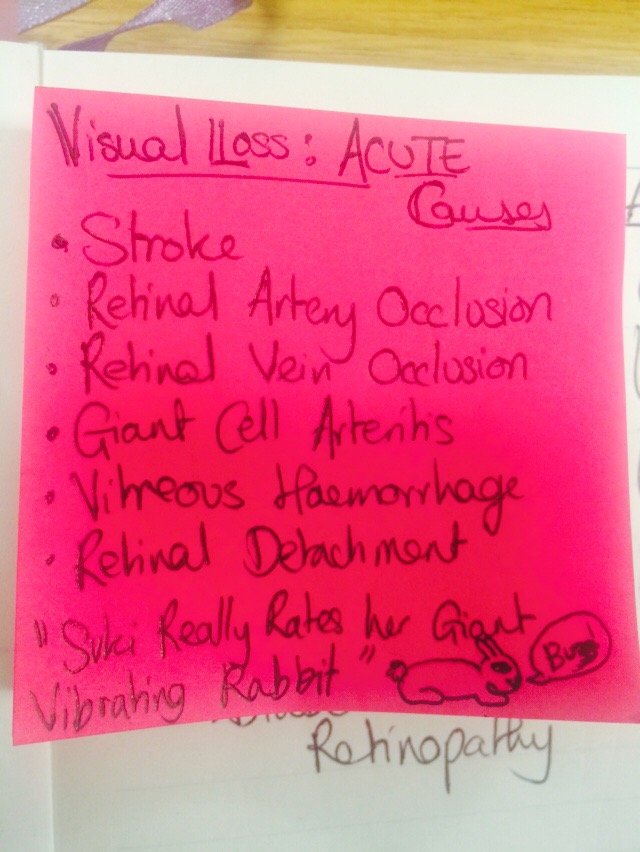 Visual Loss: ACUTE
Causes
• Stroke
• Retinal Artery Occlusion
• Retinal Vein Occlusion
• Giant Cell Arteritis
• Vitreous Haemorrhage
• Retinal Detachment
"Suki Really Rates her Giant
Vibrating Rabbit"
Retinopathy